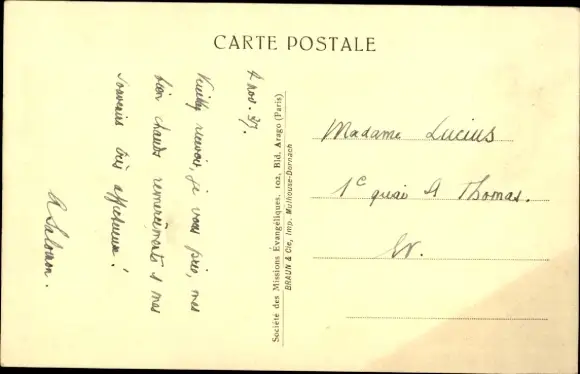 CARTE POSTALE
4 nov. 37.
Veuillez recevoir, je vous prie, mes
bien chauds remerciements & mes
souvenirs très affectueux!
A Salomon.
Société des Missions Evangéliques, 102, Bld. Arago (Paris)
BRAUN & Cie, Imp. Mulhouse-Dornach
Madame Lucius
1c quai St Thomas.